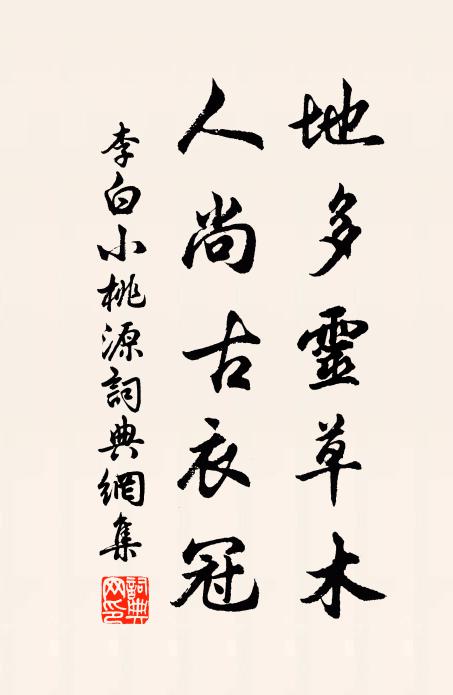 地多靈草木
人尚古衣冠
李白小桃源詞典網集
詞典網印